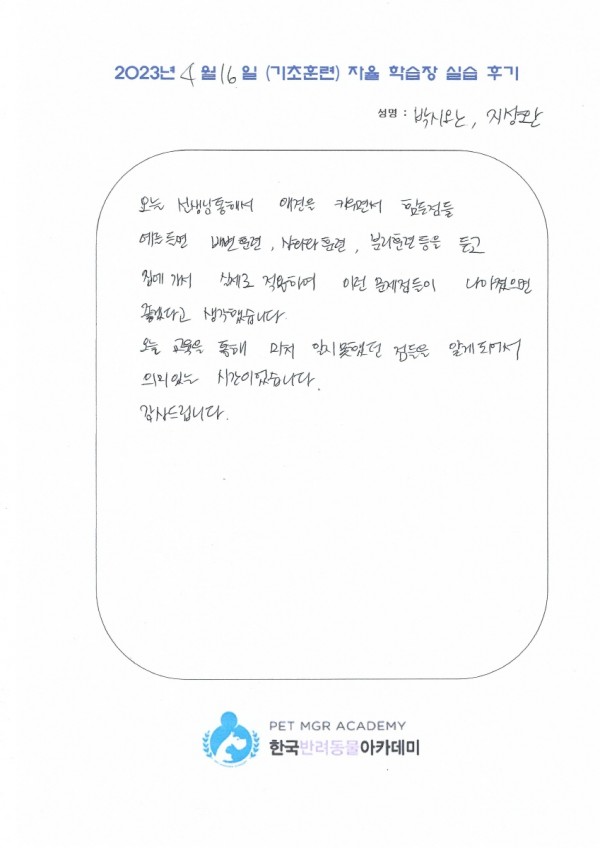 2023년 4월 16일 (기초훈련) 자율 학습장 실습 후기
성명 : 박시온, 지성환
오늘 선생님통해서 애견을 키우면서 힘든점들
예를들면 배변훈련, 산책훈련, 분리훈련등을 듣고
집에 가서 실제로 적용하여 이런 문제점들이 나아졌으면
좋겠다고 생각했습니다.
오늘 교육을 통해 미처 알지못했던 점들을 알게되어서
의미있는 시간이었습니다.
감사드립니다.
PET MGR ACADEMY
한국반려동물아카데미